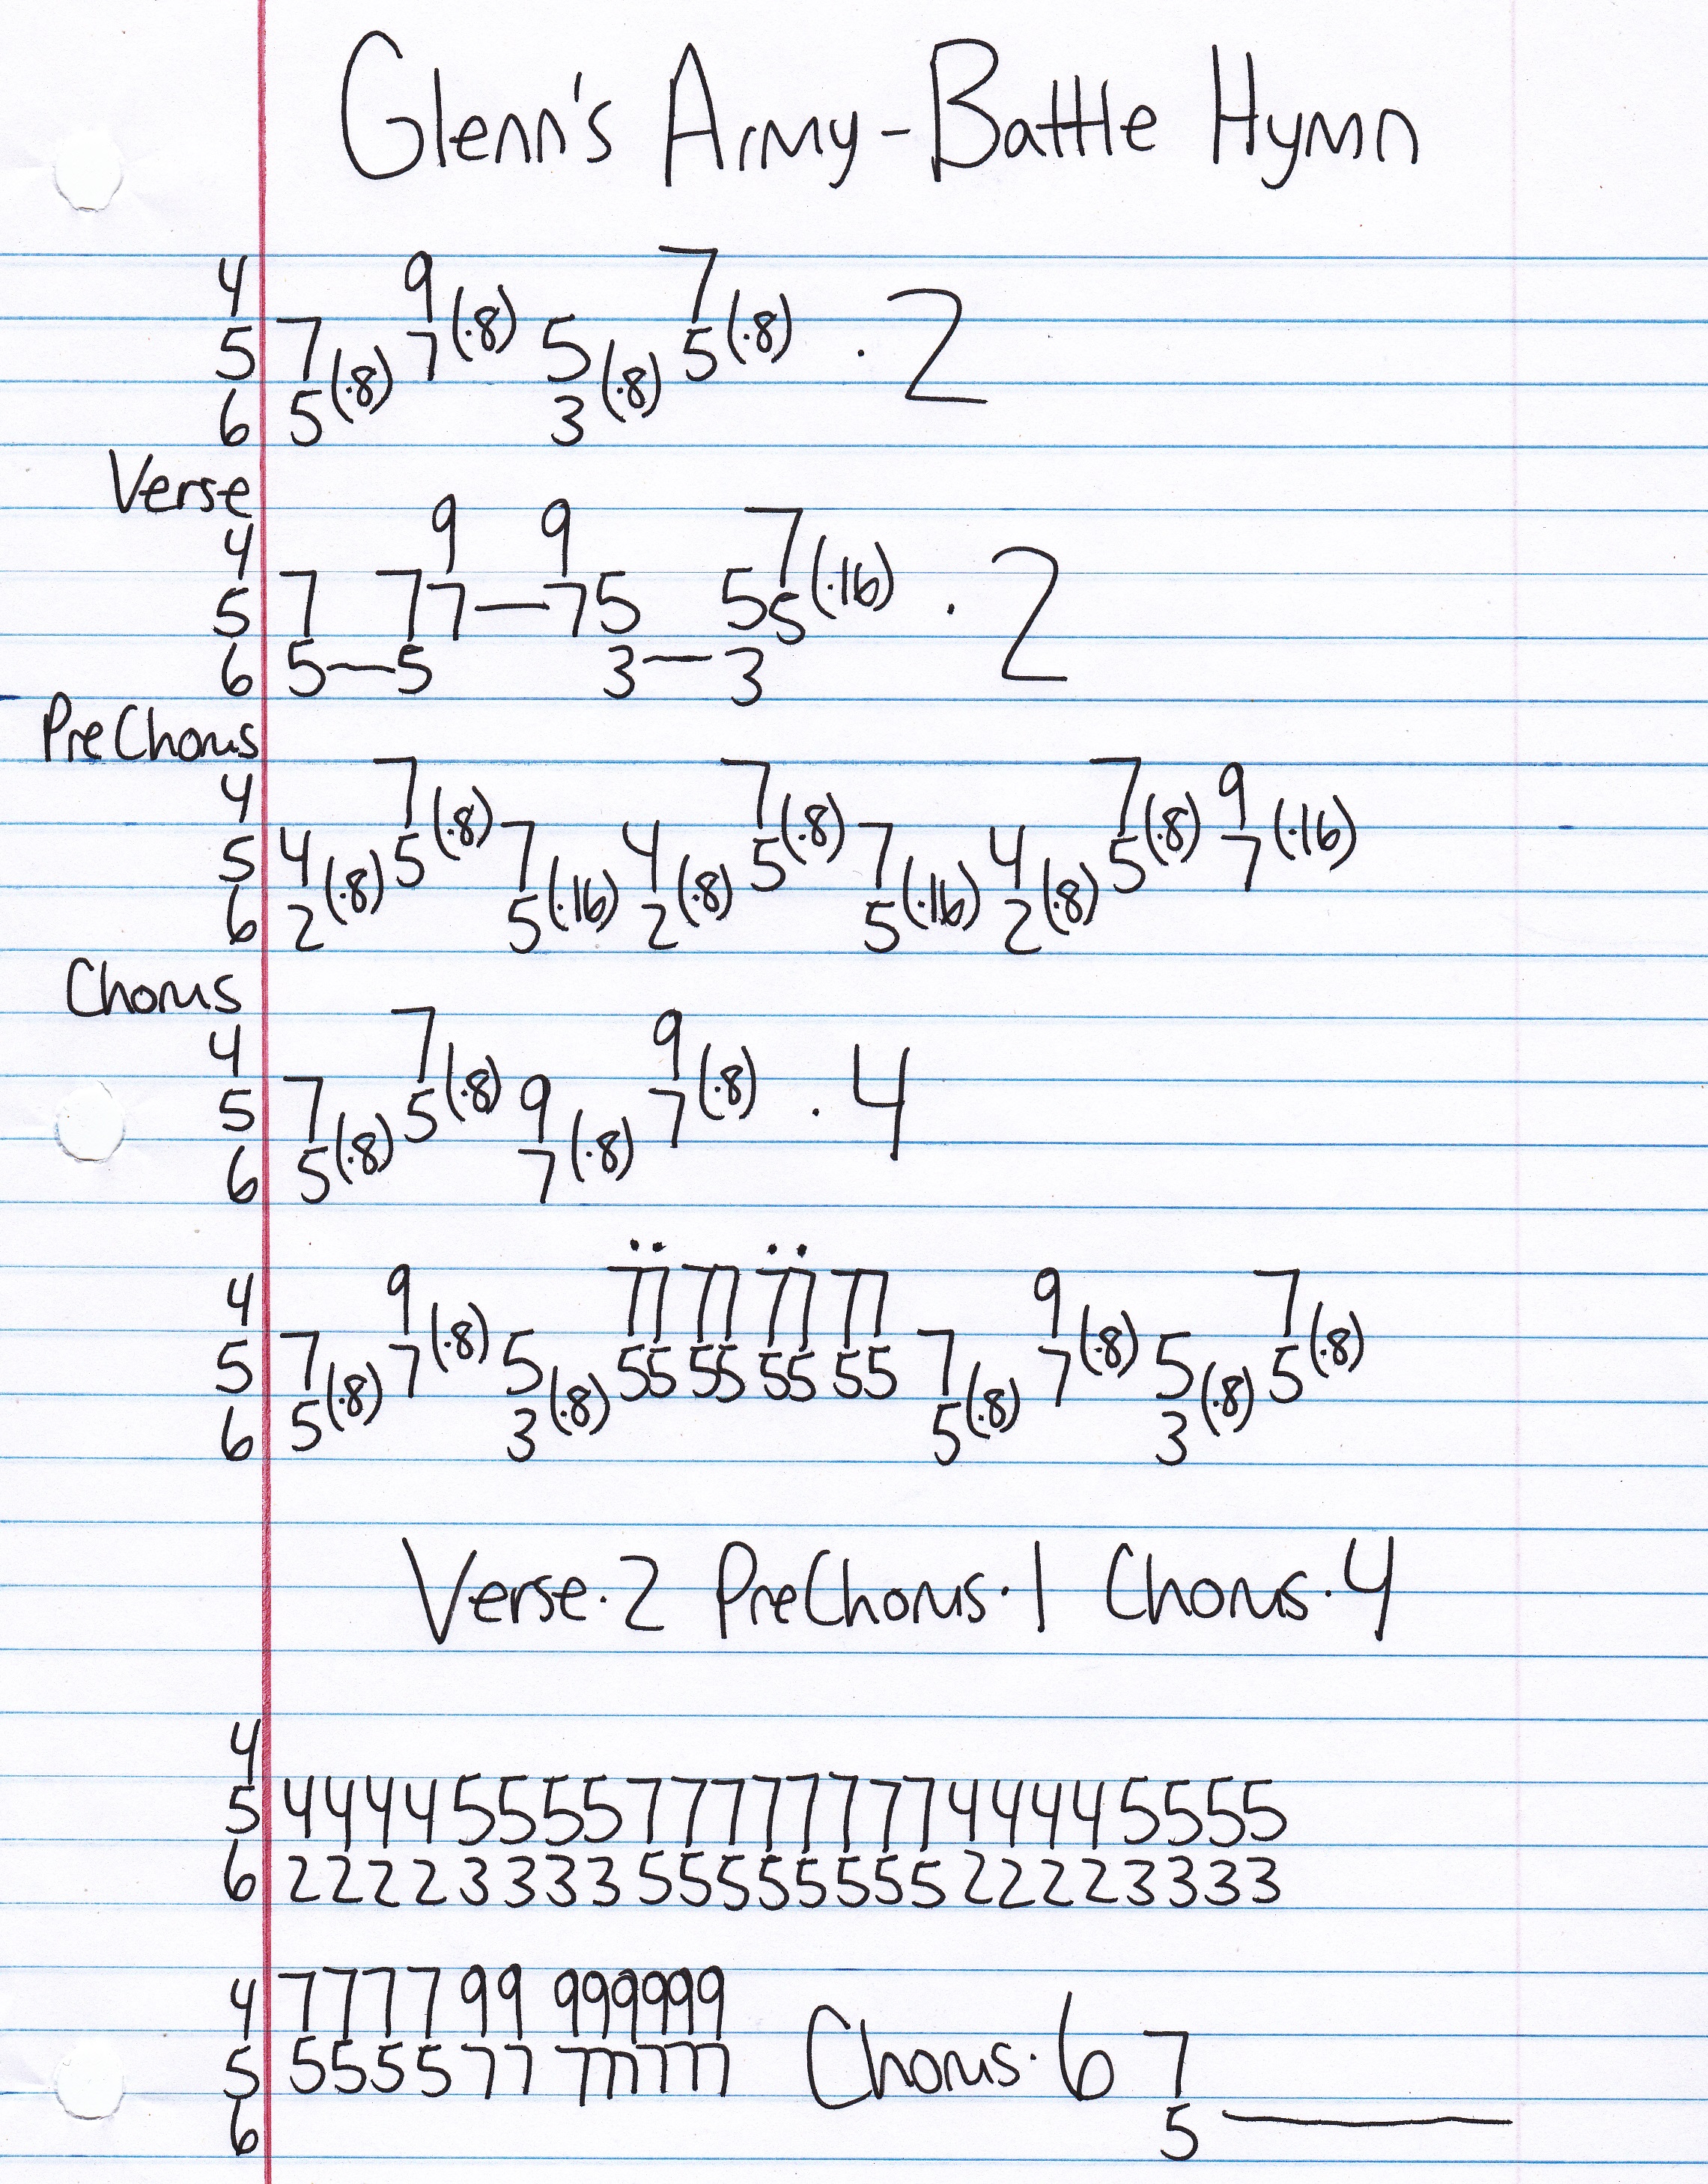 Glenn's Army - Battle Hymn
4 9 7
5 7 (·8) 7 (·8) 5 (·8) 5 (·8) · 2
6 5 3
Verse
4 9 9 7
5 7 7 7 — 7 5 5 5 (·16) · 2
6 5 — 5 3 — 3
PreChorus
4 7 7 7 9
5 4 (·8) 5 (·8) 7 (·16) 4 (·8) 5 (·8) 7 (·16) 4 (·8) 5 (·8) 7 (·16)
6 2 5 2 5 2
Chorus
4 7 9
5 7 (·8) 5 (·8) 9 (·8) 7 (·8) · 4
6 5 7
4 9 77 77 77 77 9 7
5 7 (·8) 7 (·8) 5 (·8) 55 55 55 55 7 (·8) 7 (·8) 5 (·8) 5 (·8)
6 5 3 5 3
Verse·2 PreChorus·1 Chorus·4
4
5 4 4 4 4 5 5 5 5 7 7 7 7 7 7 7 7 4 4 4 4 5 5 5 5
6 2 2 2 2 3 3 3 3 5 5 5 5 5 5 5 5 2 2 2 2 3 3 3 3
4 7 7 7 7 9 9 9 9 9 9 9 9
5 5 5 5 5 7 7 7 7 7 7 7 7 Chorus·6 7
6 5 ———